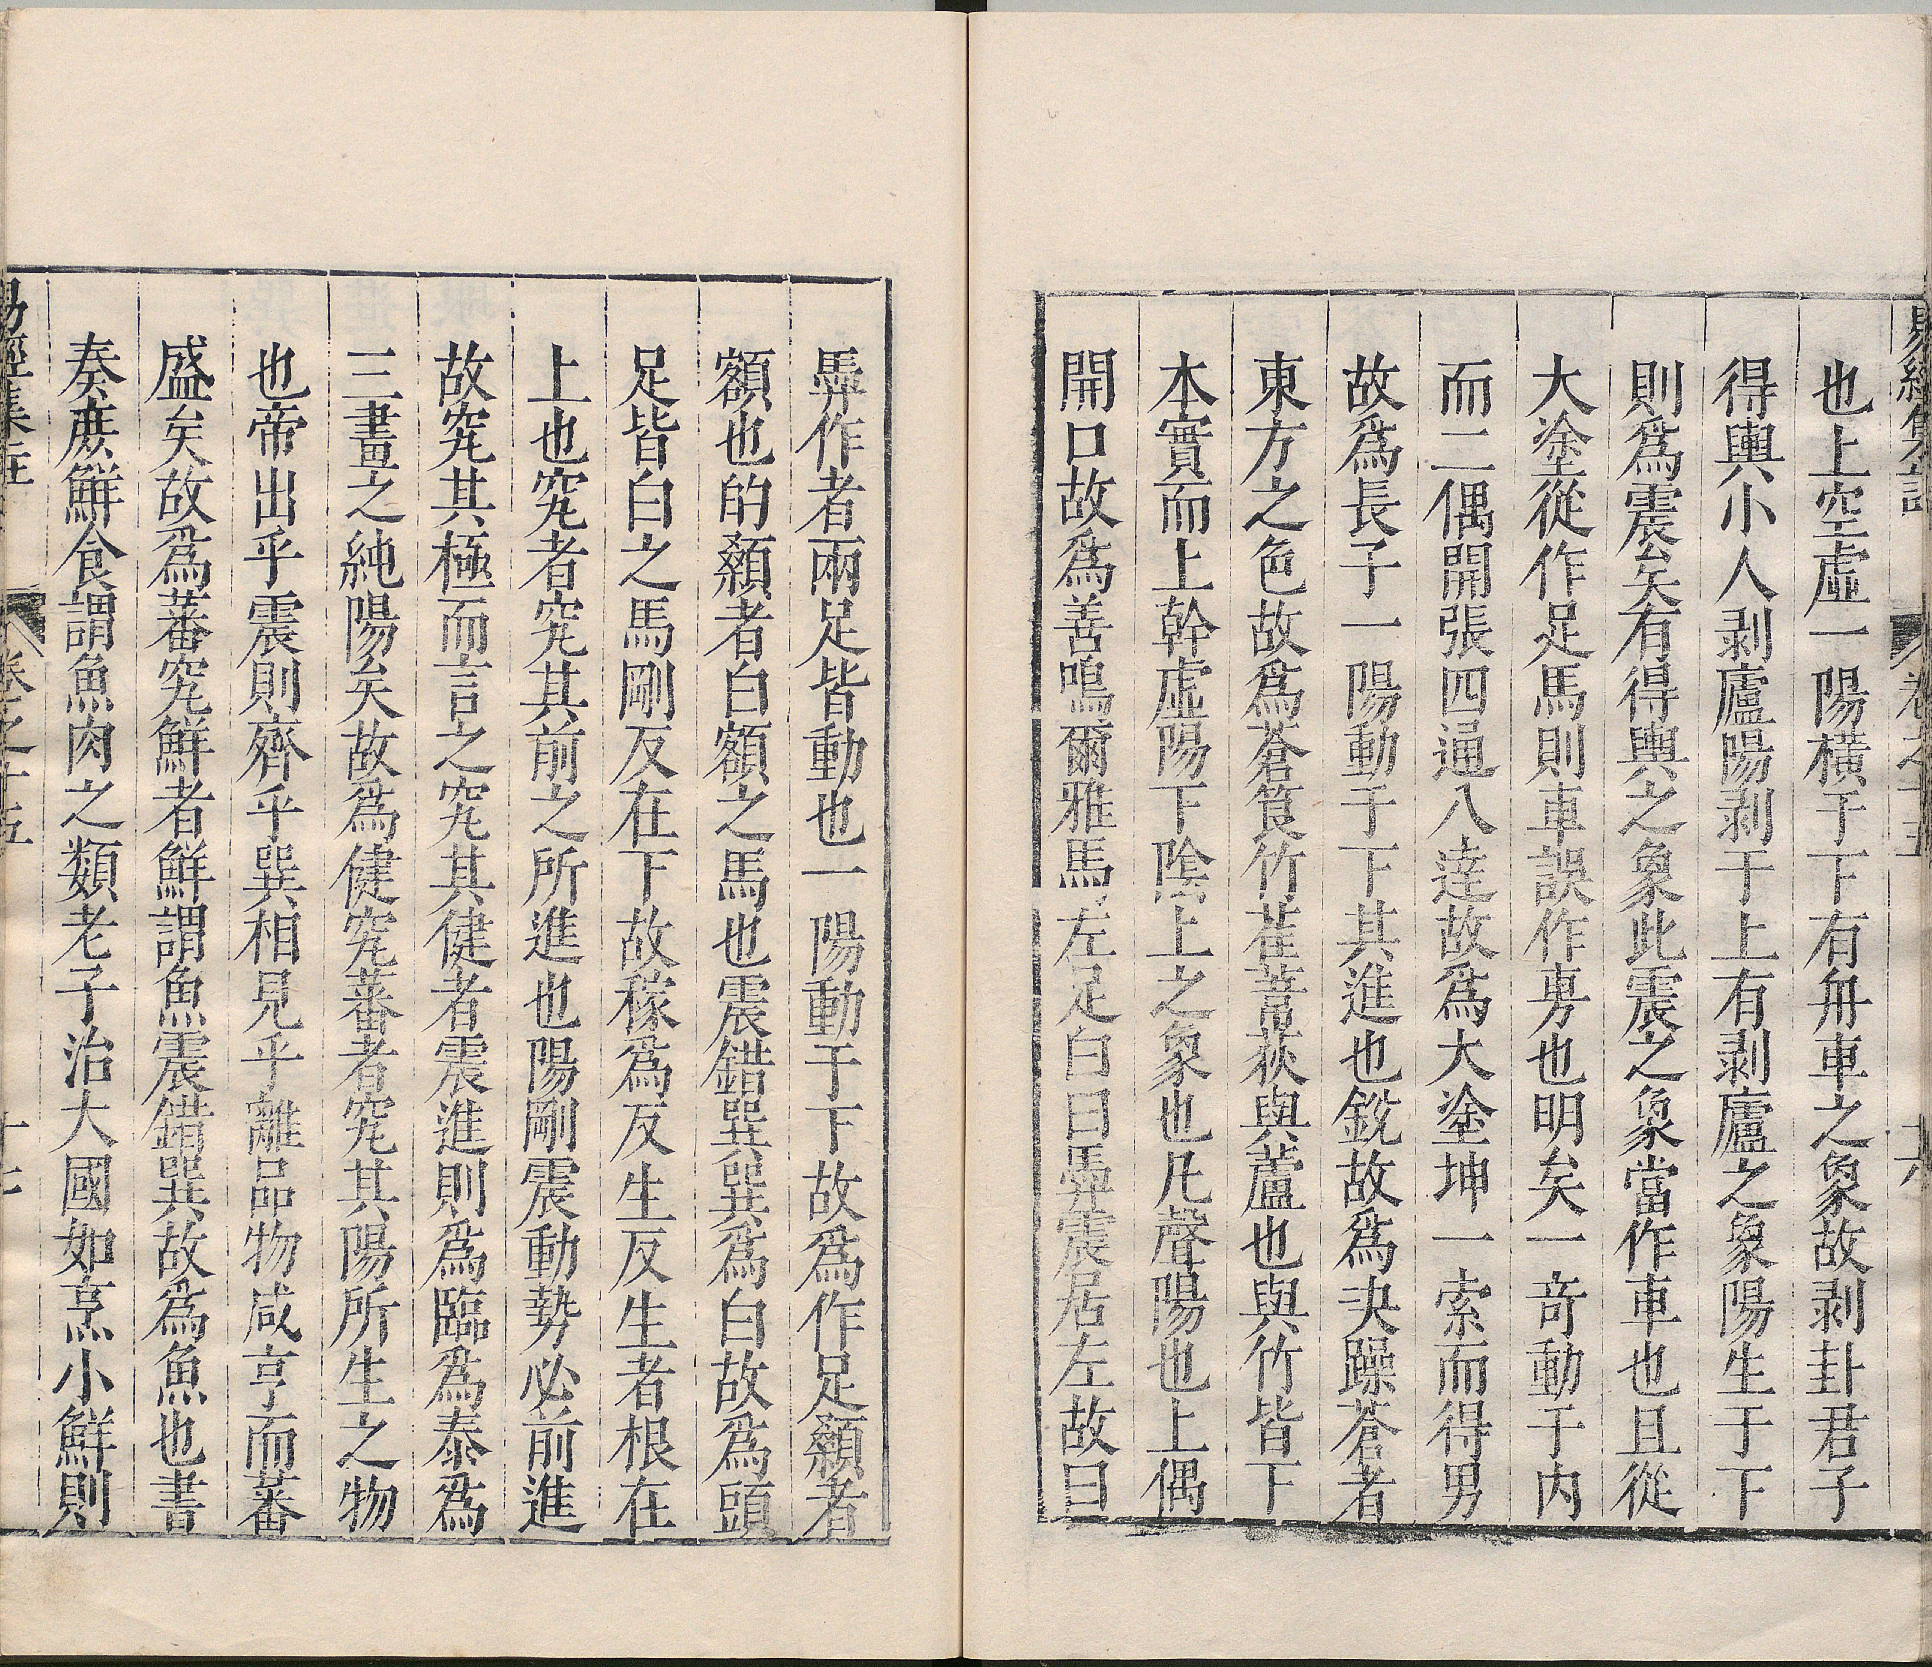 易經集註 卷之十五 十六
也上空虛一陽橫于下有舟車之象故剥卦君子
得輿小人剥廬陽剥于上有剥廬之象陽生于下
則爲震矣有得輿之象此震之象當作車也且從
大塗從作足馬則車誤作旉也明矣一竒動于内
而二偶開張四通八達故爲大塗坤一索而得男
故爲長子一陽動于下其進也銳故爲决躁蒼者
東方之色故爲蒼筤竹萑葦荻與蘆也與竹皆下
本實而上幹虛陽下陰上之象也凡聲陽也上偶
開口故爲善鳴爾雅馬左足白曰馵震居左故曰
馵作者兩足皆動也一陽動于下故爲作足顙者
額也的顙者白額之馬也震錯巽巽爲白故爲頭
足皆白之馬剛反在下故稼爲反生反生者根在
上也究者究其前之所進也陽剛震動勢必前進
故究其極而言之究其健者震進則爲臨爲泰爲
三畫之純陽矣故爲健究蕃者究其陽所生之物
也帝出乎震則齊乎巽相見乎離品物咸亨而蕃
盛矣故爲蕃究鮮者鮮謂魚震錯巽故爲魚也書
奏庶鮮食謂魚肉之類老子治大國如烹小鮮則
易經集註 卷之十五 十七